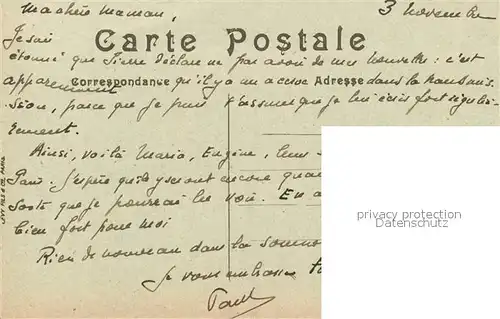 Ma chère Maman,
3 Novembre
Je suis
Carte Postale
étonné que Pierre déclare ne pas avoir de mes nouvelles : c'est
apparemment
Correspondance
qu'il y a un accroc
Adresse
dans la transmis-
sion, parce que je puis t'assurer que je lui écris fort réguliè-
rement.
Ainsi, voilà Maria, Eugène, leurs
J'espère qu'ils y seront encore quand
sorte que je pourrai les voir. En a
bien fort pour moi
Rien de nouveau dans la Somme
Je vous embrasse
Paul
privacy protection
Datenschutz